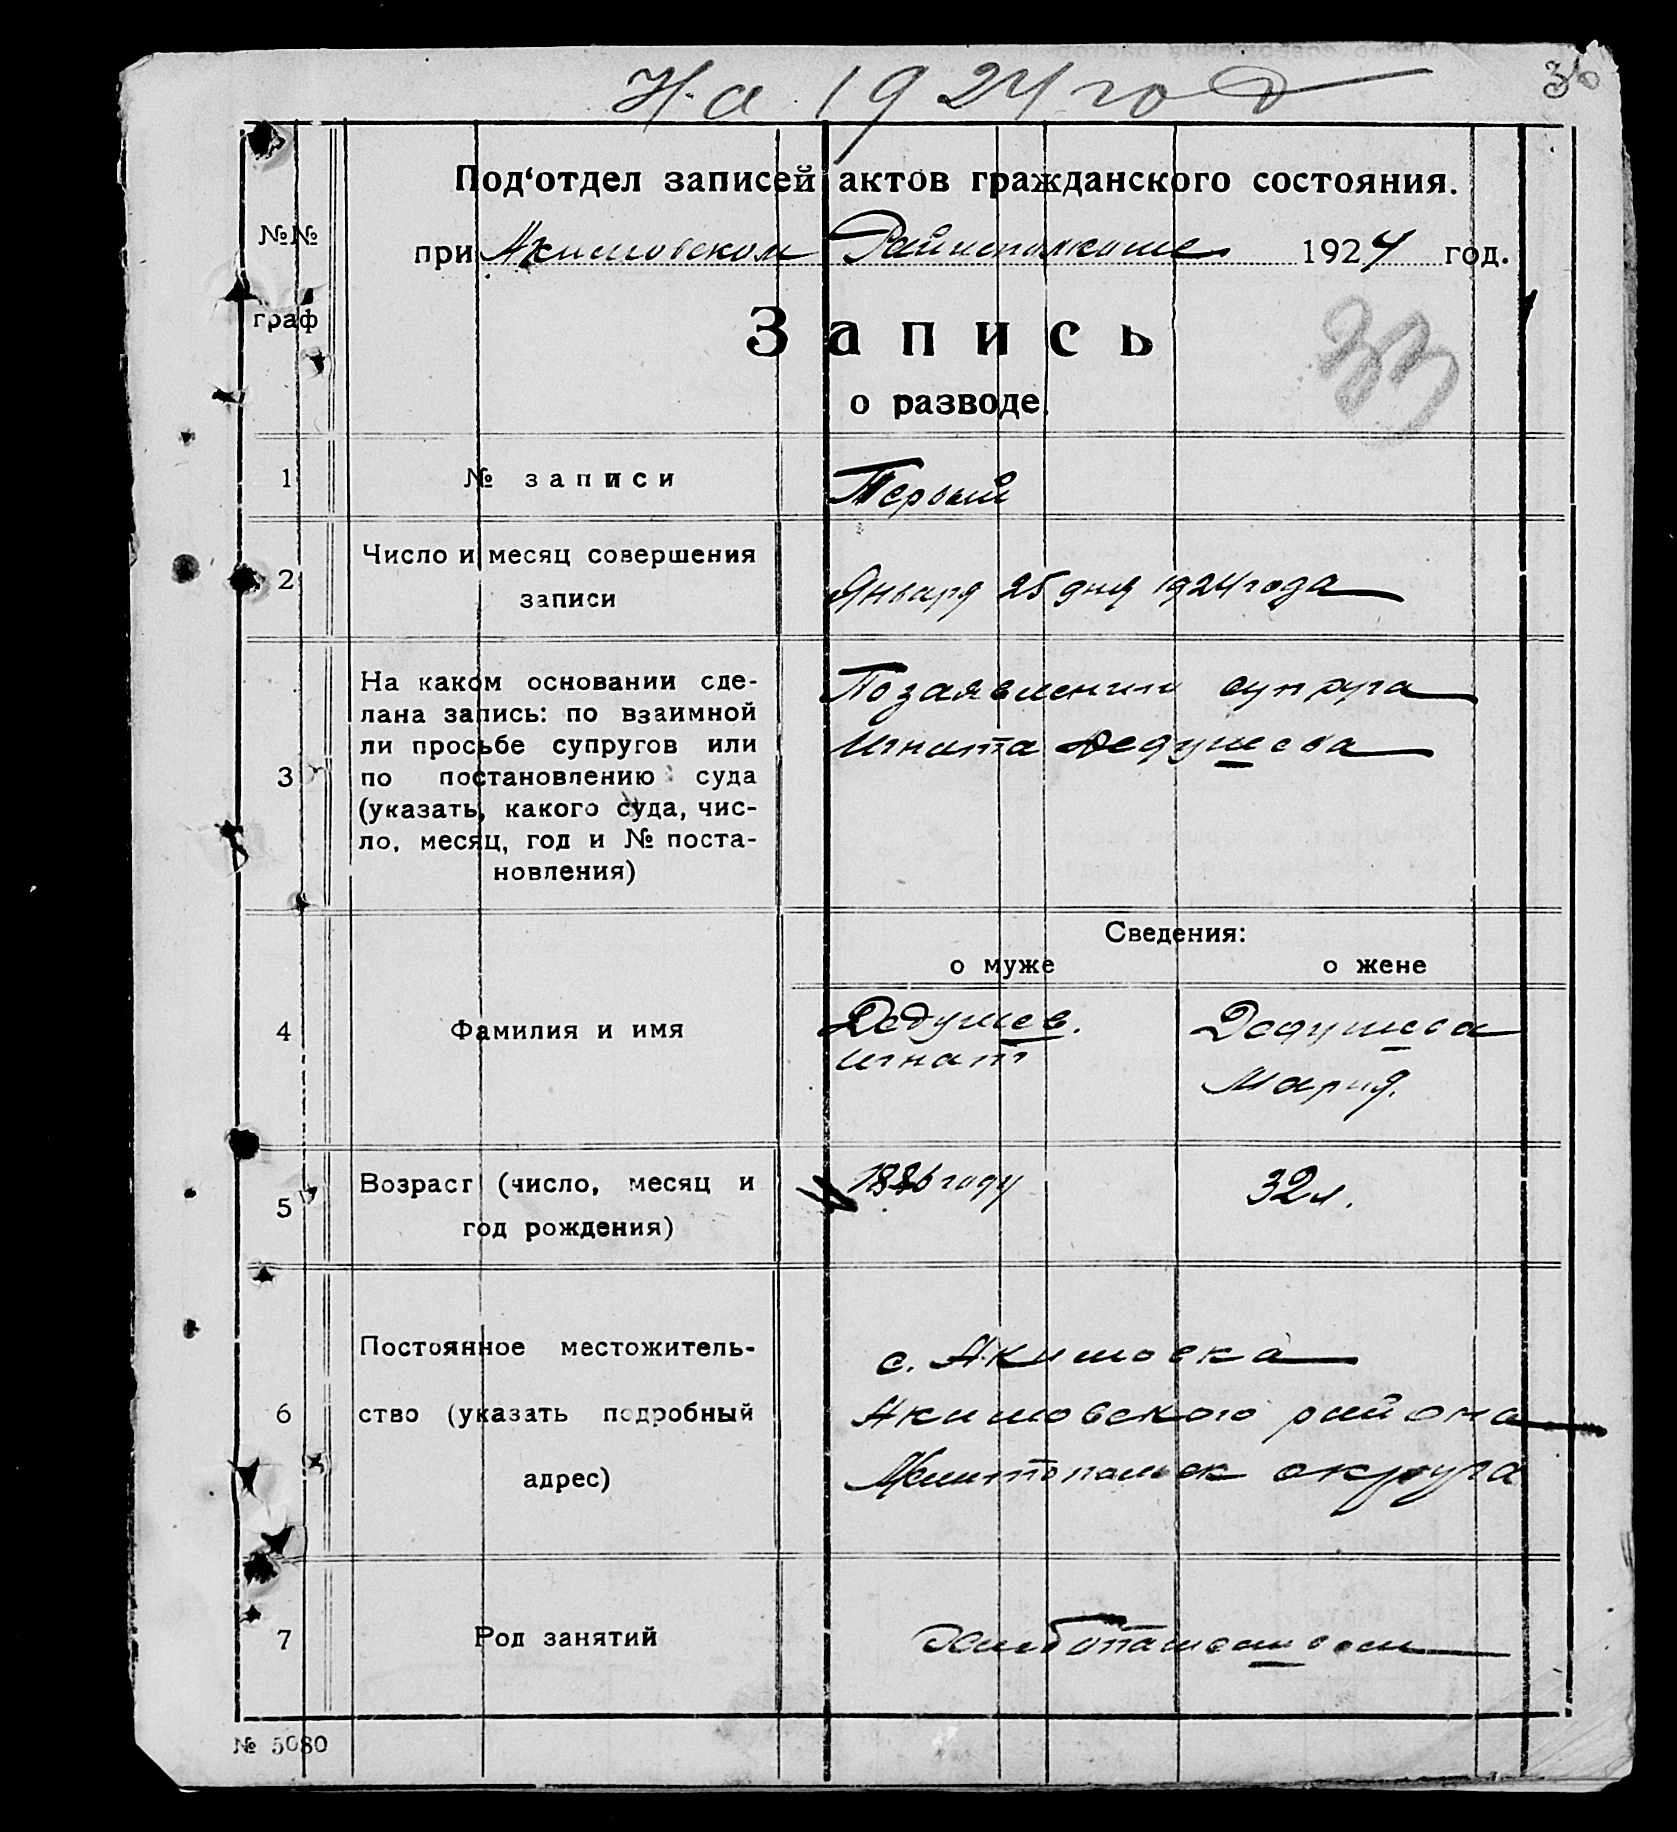 На 1924 год
36
Под‘отдел записей актов гражданского состояния.
№№
граф
при Акимовском Райисполкоме 1924 год.
Запись
33
о разводе.
1 № записи Первый
2 Число и месяц совершения
записи
Января 25 дня 1924 года
3 На каком основании сде-
лана запись: по взаимной
ли просьбе супругов или
по постановлению суда
(указать, какого суда, чис-
ло, месяц, год и № поста-
новления)
По заявлению супруга
Игната Дедушева
Сведения:
о муже о жене
4 Фамилия и имя
Дедушев. Дедушева
Игнат Мария.
5 Возраст (число, месяц и
год рождения)
1886 году 32 л.
6 Постоянное местожитель-
ство (указать подробный
адрес)
с. Акимовка
Акимовского района
Мелитопольск округа
7 Род занятий
Хлебопашеством
№ 5080